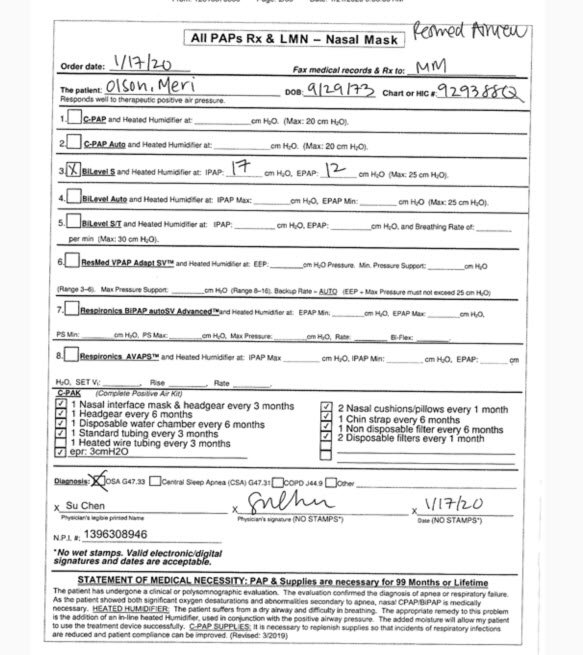 All PAPs Rx & LMN – Nasal Mask
Resmed
Order date: 1/17/20
Fax medical records & Rx to: MM
The patient: Olson, Meri DOB: 9/29/73 Chart or HIC #: 929388Q
Responds well to therapeutic positive air pressure.
1. C-PAP and Heated Humidifier at: cm H₂O. (Max: 20 cm H₂O).
2. C-PAP Auto and Heated Humidifier at: cm H₂O. (Max: 20 cm H₂O).
3. X BiLevel S and Heated Humidifier at: IPAP: 17 cm H₂O, EPAP: 12 cm H₂O (Max: 25 cm H₂O).
4. BiLevel Auto and Heated Humidifier at: IPAP Max: cm H₂O, EPAP Min: cm H₂O (Max: 25 cm H₂O).
5. BiLevel S/T and Heated Humidifier at: IPAP: cm H₂O, EPAP: cm H₂O, and Breathing Rate of:
per min (Max: 30 cm H₂O).
6. ResMed VPAP Adapt SV™ and Heated Humidifier at: EEP: cm H₂O Pressure. Min. Pressure Support: cm H₂O
(Range 3–6). Max Pressure Support: cm H₂O (Range 8–16). Backup Rate = AUTO (EEP + Max Pressure must not exceed 25 cm H₂O)
7. Respironics BiPAP autoSV Advanced™ and Heated Humidifier at: EPAP Min: cm H₂O, EPAP Max: cm H₂O,
PS Min: cm H₂O. PS Max: cm H₂O, Max Pressure: cm H₂O, Rate: Bi-Flex:
8. Respironics AVAPS™ and Heated Humidifier at: IPAP Max cm H₂O, IPAP Min: cm H₂O, EPAP: cm
H₂O, SET Vₜ: , Rise , Rate
C-PAK (Complete Positive Air Kit)
✓ 1 Nasal interface mask & headgear every 3 months
✓ 1 Headgear every 6 months
✓ 1 Disposable water chamber every 6 months
✓ 1 Standard tubing every 3 months
1 Heated wire tubing every 3 months
✓ epr: 3cmH2O
✓ 2 Nasal cushions/pillows every 1 month
✓ 1 Chin strap every 6 months
✓ 1 Non disposable filter every 6 months
✓ 2 Disposable filters every 1 month
Diagnosis: X OSA G47.33 Central Sleep Apnea (CSA) G47.31 COPD J44.9 Other
X Su Chen X X 1/17/20
Physician's legible printed Name Physician's signature (NO STAMPS*) Date (NO STAMPS*)
N.P.I. #: 1396308946
*No wet stamps. Valid electronic/digital
signatures and dates are acceptable.
STATEMENT OF MEDICAL NECESSITY: PAP & Supplies are necessary for 99 Months or Lifetime
The patient has undergone a clinical or polysomnographic evaluation. The evaluation confirmed the diagnosis of apnea or respiratory failure.
As the patient showed both significant oxygen desaturations and abnormalities secondary to apnea, nasal CPAP/BiPAP is medically
necessary. HEATED HUMIDIFIER: The patient suffers from a dry airway and difficulty in breathing. The appropriate remedy to this problem
is the addition of an in-line heated Humidifier, used in conjunction with the positive airway pressure. The added moisture will allow my patient
to use the treatment device successfully. C-PAP SUPPLIES: It is necessary to replenish supplies so that incidents of respiratory infections
are reduced and patient compliance can be improved. (Revised: 3/2019)